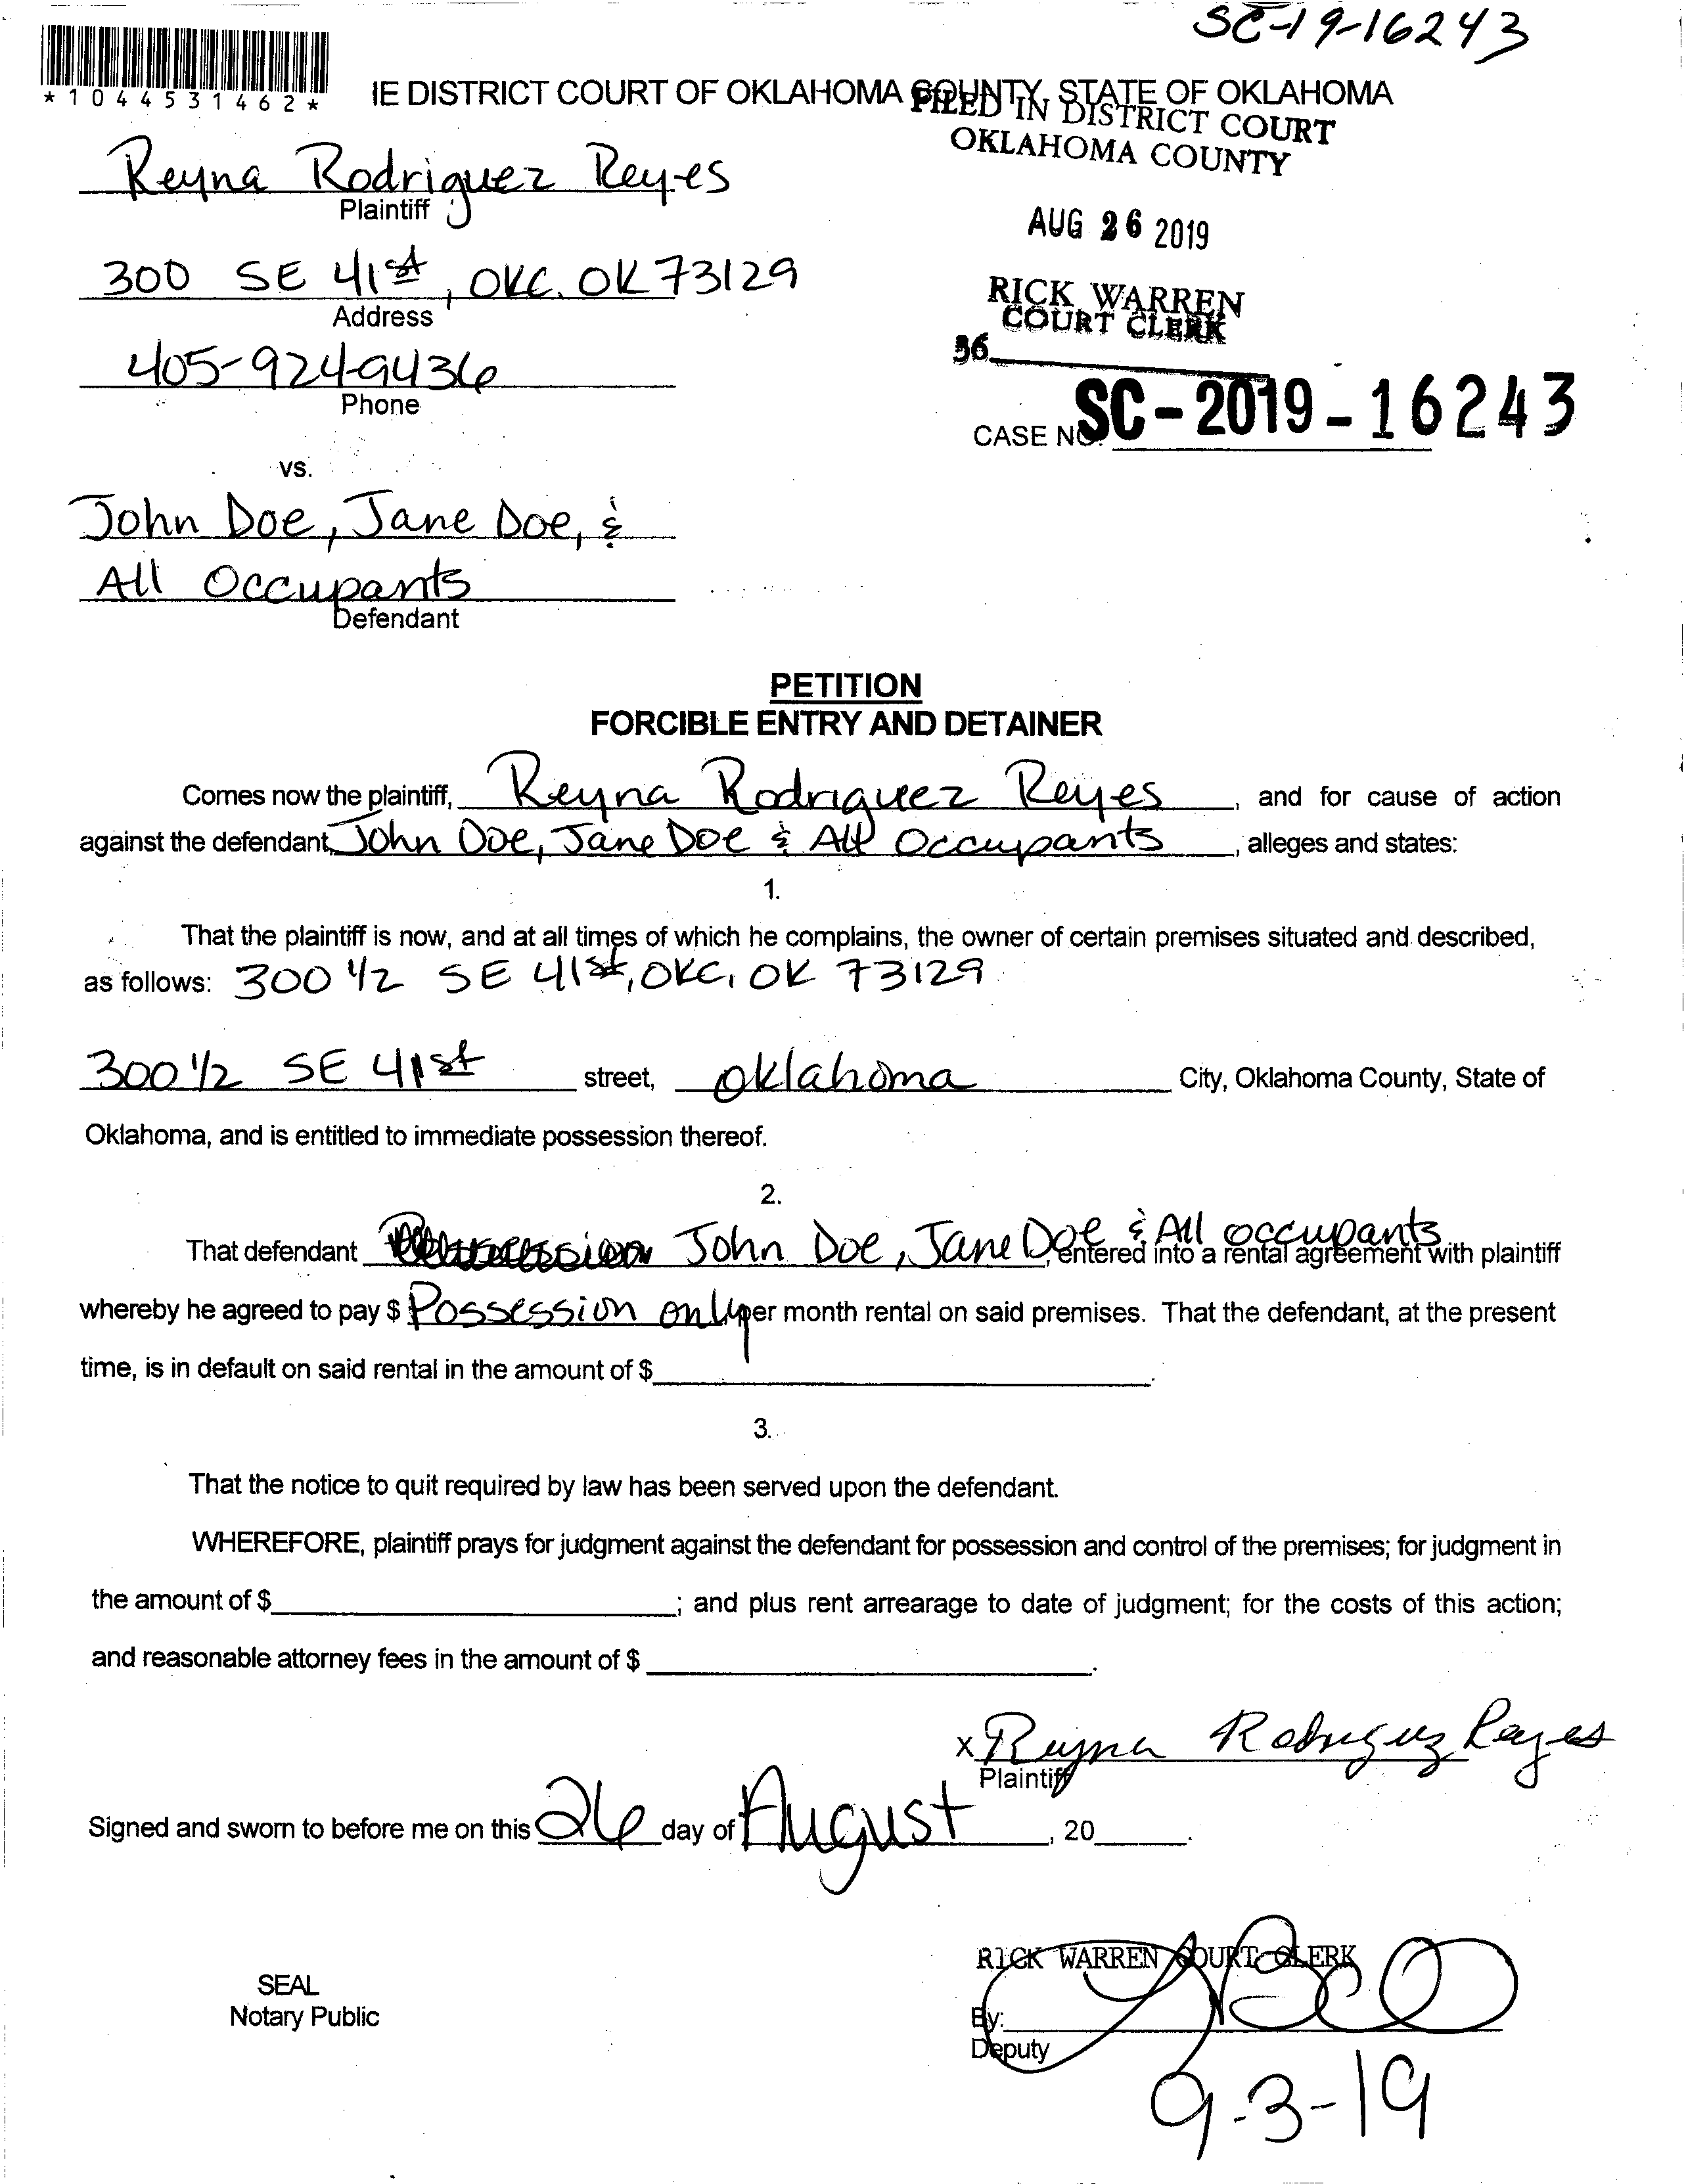 SC-19-16243
*1044531462*
IE DISTRICT COURT OF OKLAHOMA COUNTY, STATE OF OKLAHOMA
FILED IN DISTRICT COURT
OKLAHOMA COUNTY
Reyna Rodriguez Reyes
Plaintiff
AUG 26 2019
300 SE 41st, OKC, OK 73129
Address
RICK WARREN
COURT CLERK
36
405-924-9436
Phone
CASE NO. SC-2019-16243
vs.
John Doe, Jane Doe, &
All Occupants
Defendant
PETITION
FORCIBLE ENTRY AND DETAINER
Comes now the plaintiff, Reyna Rodriguez Reyes, and for cause of action
against the defendant, John Doe, Jane Doe & All Occupants, alleges and states:
1.
That the plaintiff is now, and at all times of which he complains, the owner of certain premises situated and described,
as follows: 300 1/2 SE 41st, OKC, OK 73129
300 1/2 SE 41st street, Oklahoma City, Oklahoma County, State of
Oklahoma, and is entitled to immediate possession thereof.
2.
That defendant John Doe, Jane Doe & All occupants, entered into a rental agreement with plaintiff
whereby he agreed to pay $ Possession only per month rental on said premises. That the defendant, at the present
time, is in default on said rental in the amount of $ .
3.
That the notice to quit required by law has been served upon the defendant.
WHEREFORE, plaintiff prays for judgment against the defendant for possession and control of the premises; for judgment in
the amount of $ ; and plus rent arrearage to date of judgment; for the costs of this action;
and reasonable attorney fees in the amount of $ .
x Reyna Rodriguez Reyes
Plaintiff
Signed and sworn to before me on this 26 day of August, 20 .
RICK WARREN COURT CLERK
SEAL
Notary Public
By:
Deputy
9-3-19